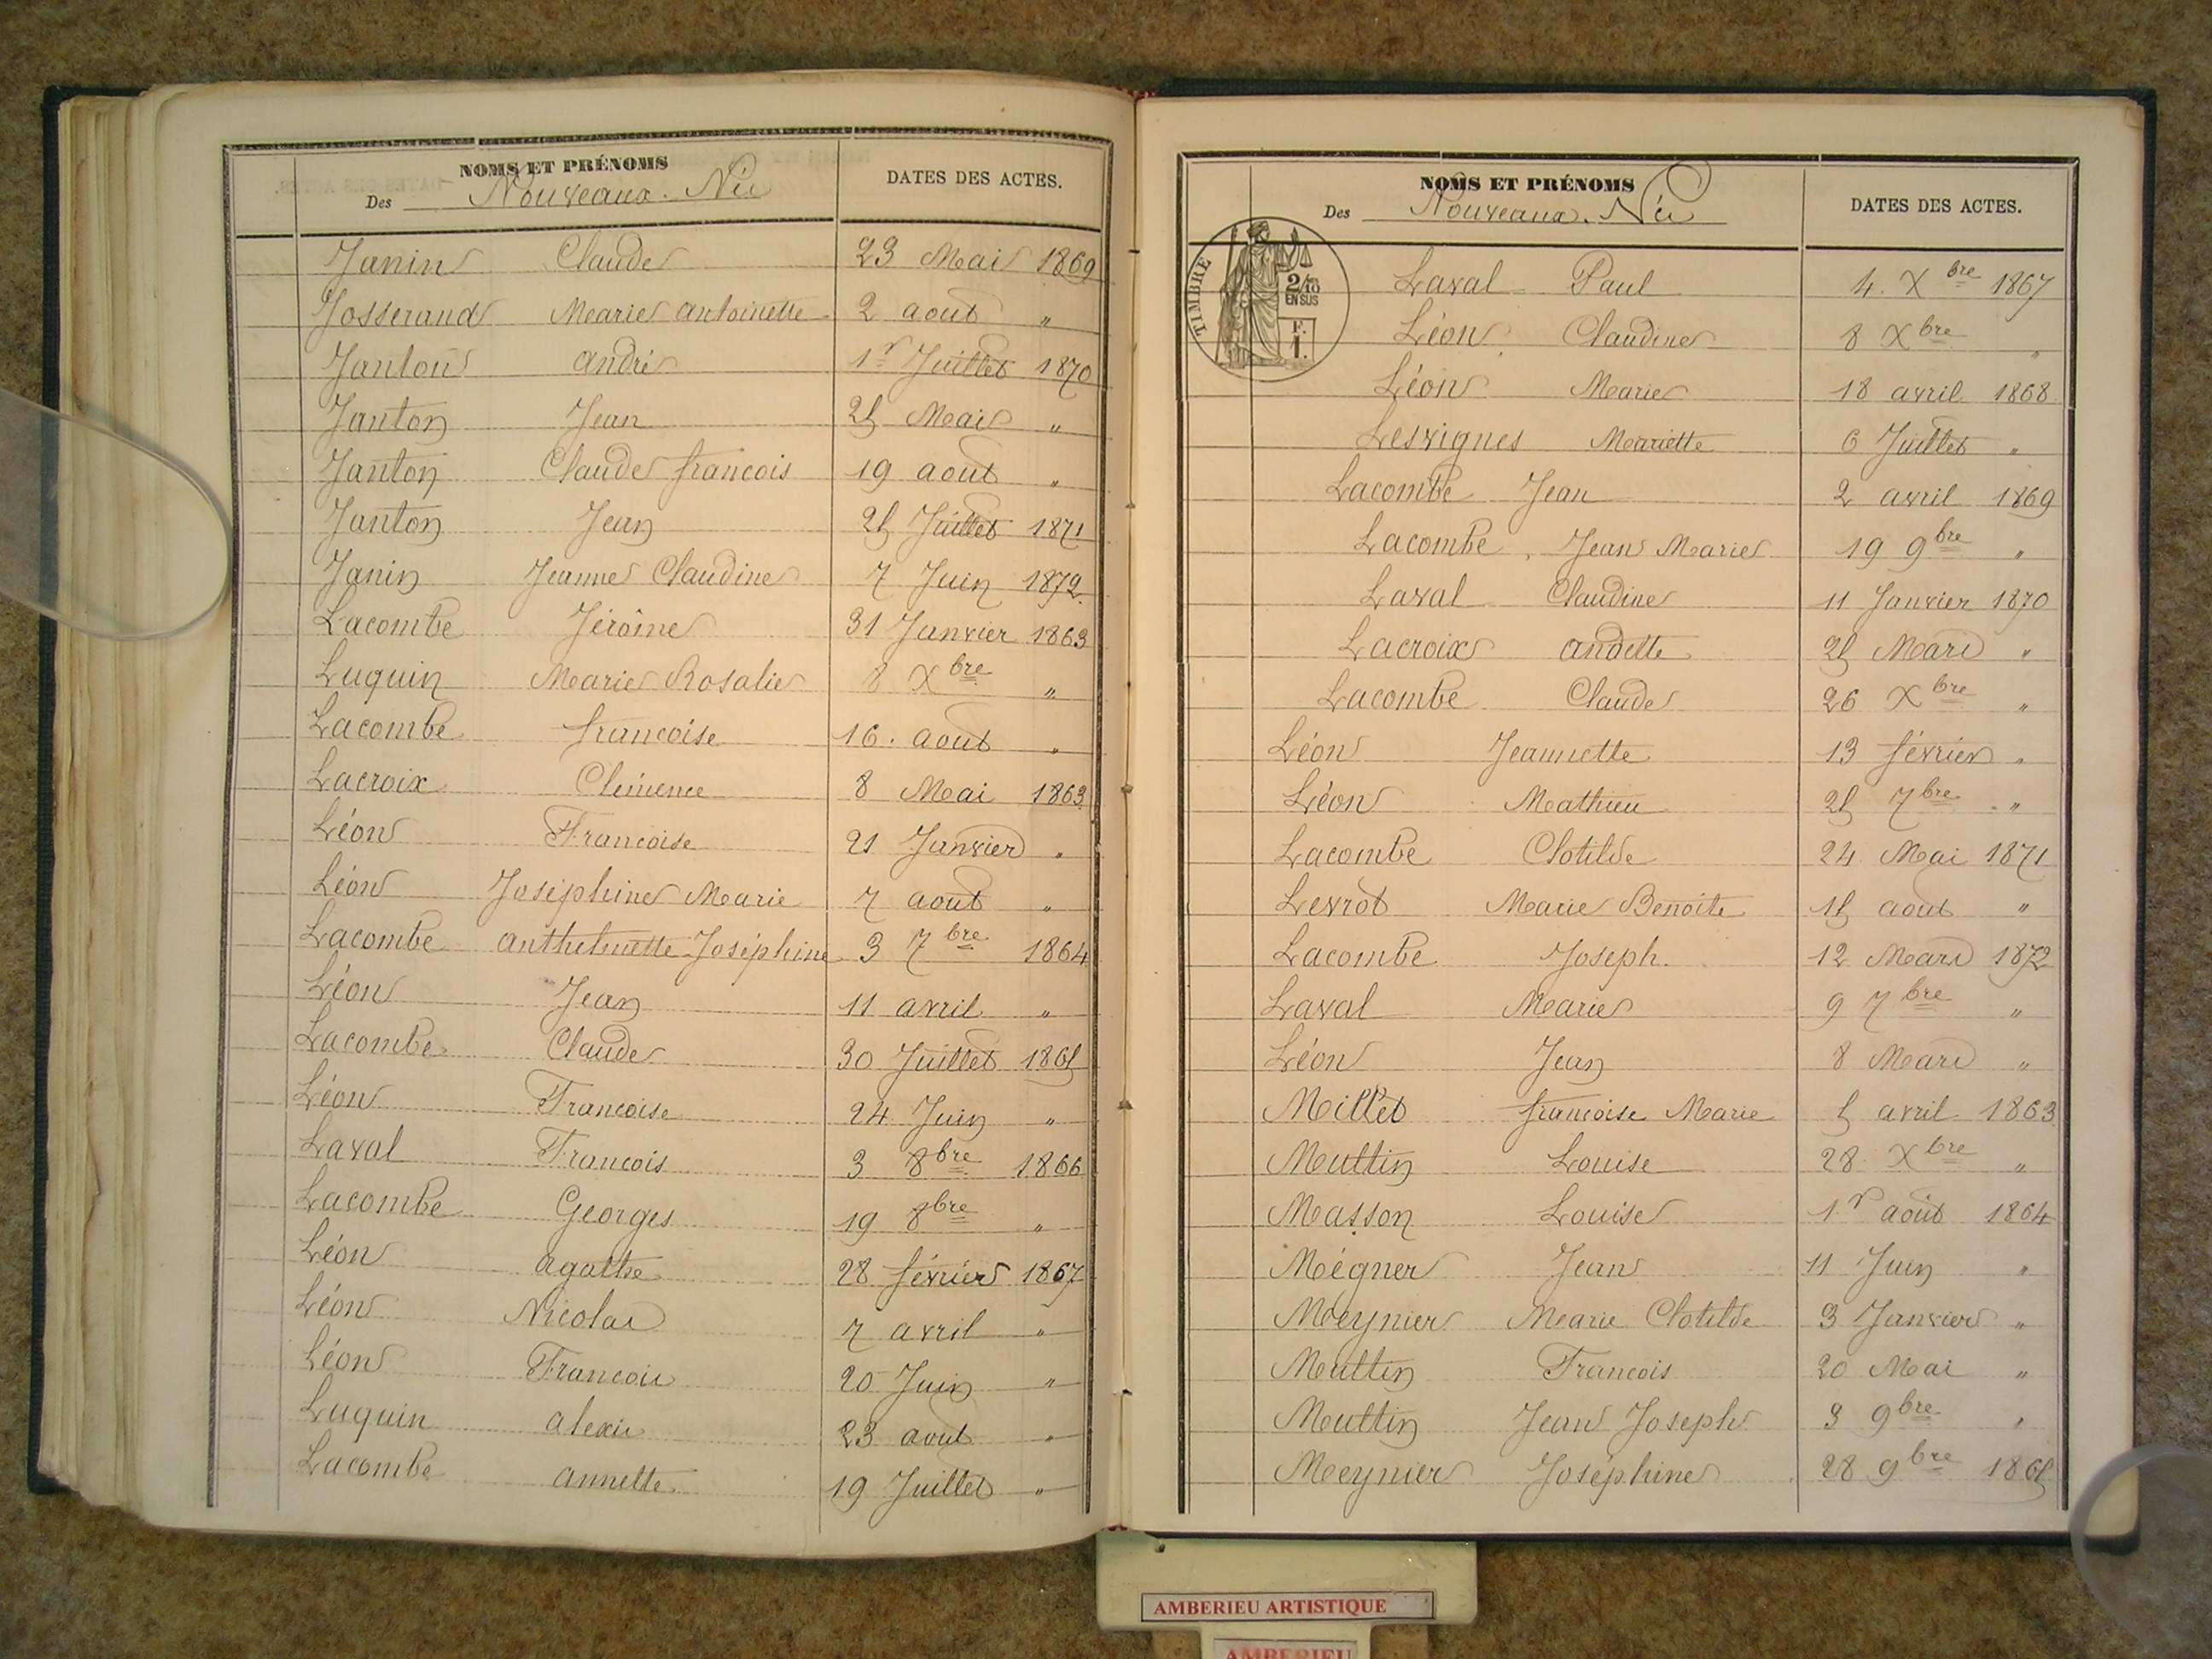 NOMS ET PRÉNOMS
Des Nouveaux-Nés
DATES DES ACTES.
Janin Claude 23 Mai 1869
Josserand Marie antoinette 2 aout "
Janton andré 1r Juillet 1870
Janton Jean 25 Mai "
Janton Claude francois 19 aout "
Janton Jean 25 Juillet 1871
Janin Jeanne Claudine 7 Juin 1872
Lacombe Jérôme 31 Janvier 1863
Luquin Marie Rosalie 8 Xbre "
Lacombe francoise 16 aout "
Lacroix Clémence 8 Mai 1863
Léon Francoise 21 Janvier "
Léon Joséphine Marie 7 aout "
Lacombe anthelmette Joséphine 3 7bre 1864
Léon Jean 11 avril "
Lacombe Claude 30 Juillet 1865
Léon Francoise 24 Juin "
Laval Francois 3 8bre 1866
Lacombe Georges 19 8bre "
Léon agathe 28 février 1867
Léon Nicolas 7 avril "
Léon Francois 20 Juin "
Luquin alexis 23 aout "
Lacombe annette 19 Juillet "
NOMS ET PRÉNOMS
Des Nouveaux-Nés
DATES DES ACTES.
TIMBRE
2/10
EN SUS
F.
1.
Laval Paul 4 Xbre 1867
Léon Claudine 8 Xbre "
Léon Marie 18 avril 1868
Lesvignes Mariette 6 Juillet "
Lacombe Jean 2 avril 1869
Lacombe Jean Marie 19 9bre "
Laval Claudine 11 Janvier 1870
Lacroix 25 Mars "
Lacombe Claude 26 Xbre "
Léon Jeannette 13 février "
Léon Mathieu 25 7bre "
Lacombe Clotilde 24 Mai 1871
Levrot Marie Benoite 15 aout "
Lacombe Joseph 12 Mars 1872
Laval Marie 9 7bre "
Léon Jean 8 Mars "
Millet francoise Marie 5 avril 1863
Multin Louise 28 Xbre "
Masson Louise 1r août 1864
Mégner Jean 11 Juin "
Meynier Marie Clotilde 3 Janvier "
Multin Francois 20 Mai "
Multin Jean Joseph 3 9bre "
Meynier Joséphine 28 9bre 1865
AMBERIEU ARTISTIQUE
AMBERIEU